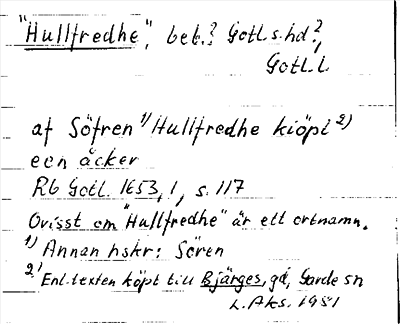 "Hullfredhe", bet.? Gotl.s.hd?,
Gotl.l.
af Söfren 1) Hullfredhe kiöpt 2)
een åcker
Rb Gotl. 1653, 1, s. 117
Ovisst om "Hullfredhe" är ett ortnamn.
1) Annan hskr: Sören
2) Enl. texten köpt till Bjärges, gd, Garde sn
L. Aks. 1951